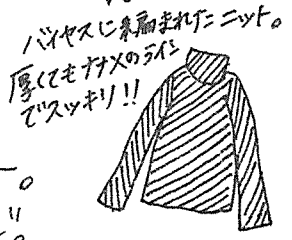 バイヤスに編まれたニット。
厚くてもナナメのライン
でスッキリ!!
ー。
!!